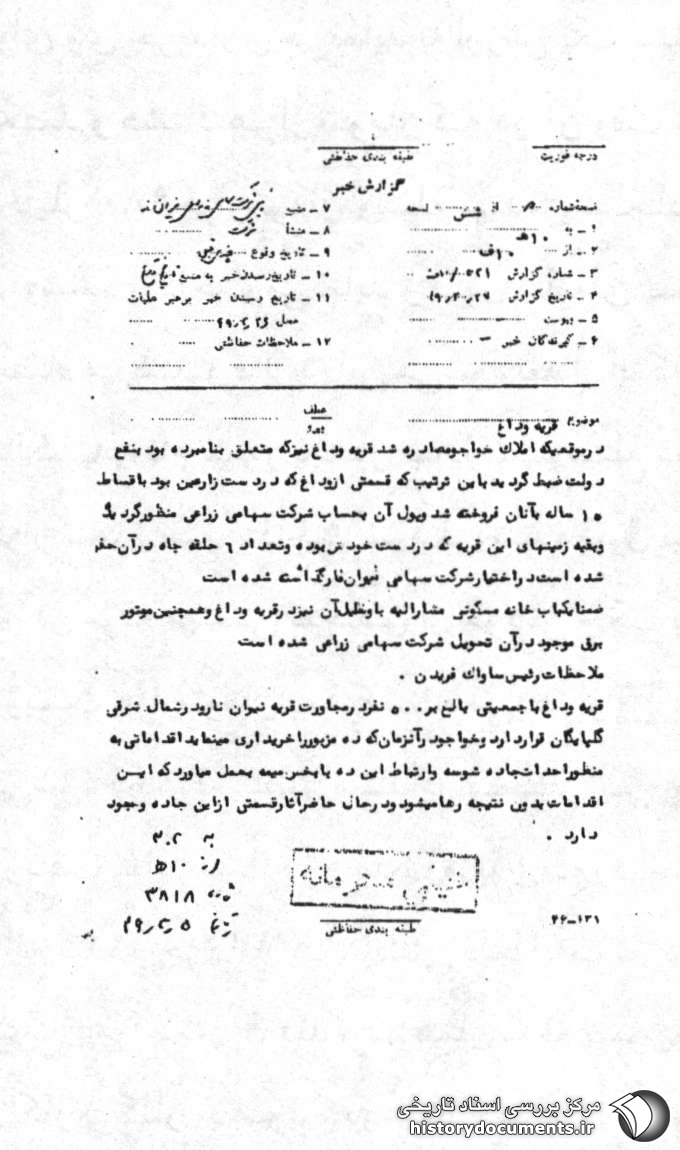 درجه فوریت
طبقه بندی حفاظتی
گزارش خبر
نسخه شماره از شش نسخه
۱ـ به ۱۰ هـ
۲ـ از ۱۰ ف
۳ـ شماره گزارش
۴ـ تاریخ گزارش
۵ـ پیوست
۶ـ گیرندگان خبر ـ
۷ـ منبع
۸ـ منشأ
۹ـ تاریخ وقوع
۱۰ـ تاریخ رسیدن خبر به منبع
۱۱ـ تاریخ رسیدن خبر برهبر عملیات
محل
۱۲ـ ملاحظات حفاظتی
موضوع قریه وداغ
عطف
پیرو
درموقعیکه املاک خواجومصادره شد قریه وداغ نیزکه متعلق بنامبرده بود بنفع
دولت ضبط گردید باین ترتیب که قسمتی ازوداغ که دردست زارعین بود باقساط
۱۵ ساله بآنان فروخته شد وپول آن بحساب شرکت سهامی زراعی منظورگردید
وبقیه زمینهای این قریه که دردست خودش بوده وتعداد ۶ حلقه چاه درآن حفر
شده است دراختیارشرکت سهامی نیوان نارگذاشته شده است
ضمنایکباب خانه مسکونی مشارالیه باوسایل آن نیزدرقریه وداغ وهمچنین موتور
برق موجوددرآن تحویل شرکت سهامی زراعی شده است
ملاحظات رئیس ساواک فریدن .
قریه وداغ باجمعیتی بالغ بر ۵۰۰ نفردرمجاورت قریه نیوان ناردرشمال شرقی
گلپایگان قراردارد وخواجودرآنزمان که ده مزبورراخریداری مینماید اقداماتی به
منظوراحداث جاده شوسه وارتباط این ده بابخش میمه بعمل میاوردکه ایـن
اقدامات بدون نتیجه رهامیشودودرحال حاضرآثارقسمتی ازاین جاده وجود
دارد .
به
از ۱۰ هـ
۳۸۱۸
۴۶ـ۱۳۱
طبقه بندی حفاظتی
مرکز بررسی اسناد تاریخی
historydocuments.ir